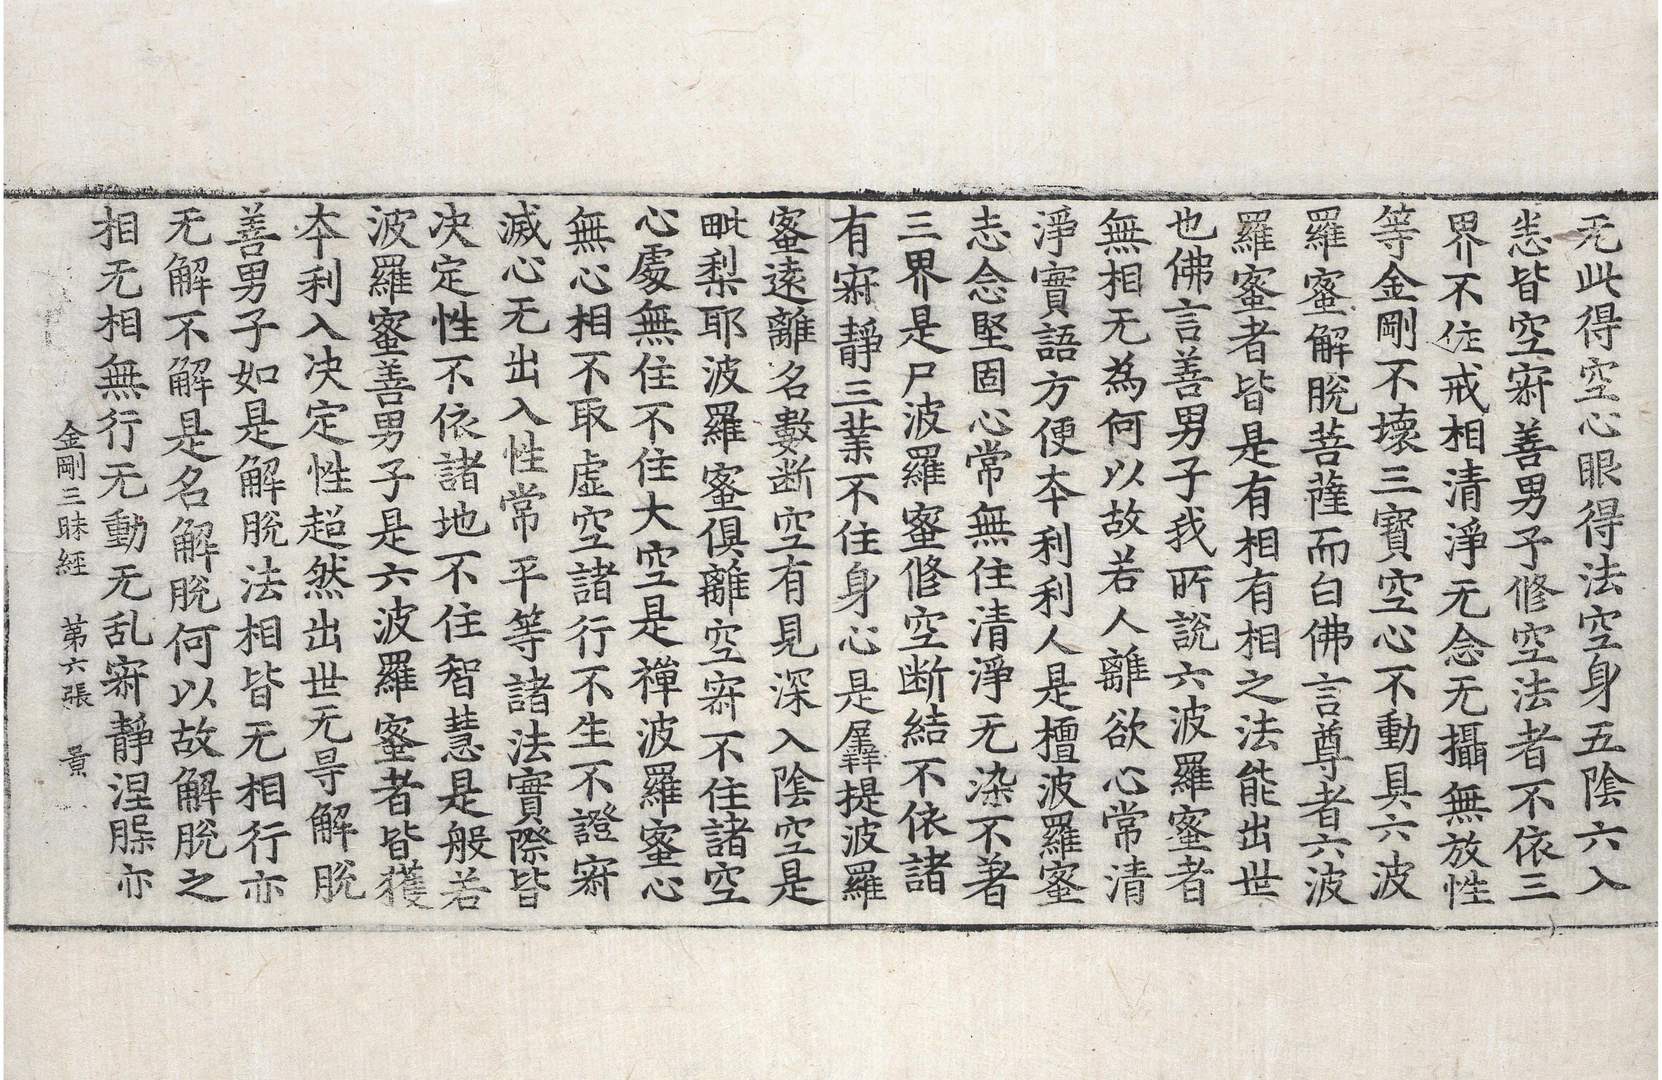 无此得空心眼得法空身五陰六入
悉皆空𡧯善男子修空法者不依三
界不住戒相清淨无念无攝無放性
等金剛不壞三寶空心不動具六波
羅蜜解脫菩薩而白佛言尊者六波
羅蜜者皆是有相有相之法能出世
也佛言善男子我所說六波羅蜜者
無相无為何以故若人離欲心常清
淨實語方便夲利利人是檀波羅蜜
志念堅固心常無住清淨无染不著
三界是尸波羅蜜修空断結不依諸
有𡧯靜三業不住身心是羼提波羅
蜜遠離名數断空有見深入陰空是
毗梨耶波羅蜜俱離空𡧯不住諸空
心處無住不住大空是禪波羅蜜心
無心相不取虛空諸行不生不證𡧯
滅心无出入性常平等諸法實際皆
决定性不依諸地不住智慧是般若
波羅蜜善男子是六波羅蜜者皆獲
夲利入决定性超然出世无㝵解脫
善男子如是解脫法相皆无相行亦
无解不解是名解脫何以故解脫之
相无相無行无動无乱𡧯靜涅𬁘亦
金剛三昧經 苐六張 黃